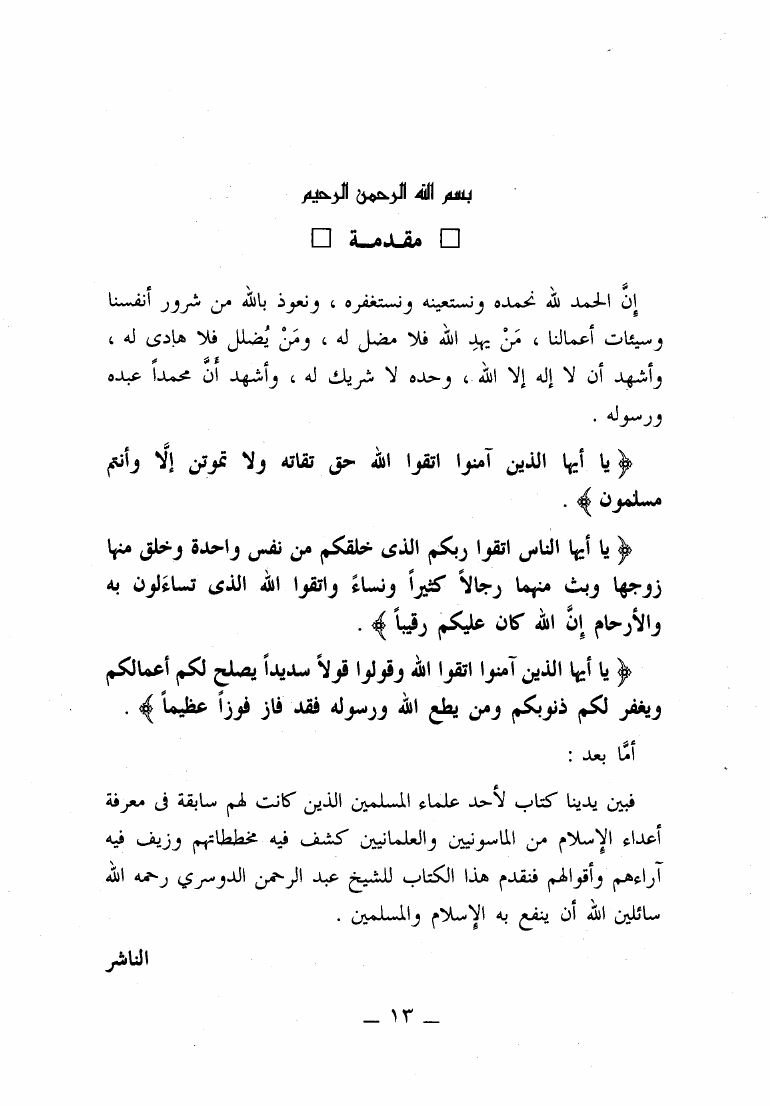 بسم الله الرحمن الرحيم
□ مقدمة □
إنَّ الحمد لله نحمده ونستعينه ونستغفره ، ونعوذ بالله من شرور أنفسنا
وسيئات أعمالنا ، مَنْ يهدِ الله فلا مضل له ، ومَنْ يُضلل فلا هادى له ،
وأشهد أن لا إله إلا الله ، وحده لا شريك له ، وأشهد أنَّ محمداً عبده
ورسوله .
﴿ يا أيها الذين آمنوا اتقوا الله حق تقاته ولا تموتن إلَّا وأنتم
مسلمون ﴾ .
﴿ يا أيها الناس اتقوا ربكم الذى خلقكم من نفس واحدة وخلق منها
زوجها وبث منهما رجالاً كثيراً ونساءً واتقوا الله الذى تساءَلون به
والأرحام إنَّ الله كان عليكم رقيباً ﴾ .
﴿ يا أيها الذين آمنوا اتقوا الله وقولوا قولاً سديداً يصلح لكم أعمالكم
ويغفر لكم ذنوبكم ومن يطع الله ورسوله فقد فاز فوزاً عظيماً ﴾ .
أمَّا بعد :
فبين يدينا كتاب لأحد علماء المسلمين الذين كانت لهم سابقة فى معرفة
أعداء الإسلام من الماسونيين والعلمانيين كشف فيه مخططاتهم وزيف فيه
آراءهم وأقوالهم فنقدم هذا الكتاب للشيخ عبد الرحمن الدوسري رحمه الله
سائلين الله أن ينفع به الإسلام والمسلمين .
الناشر
ــ ١٣ ــ